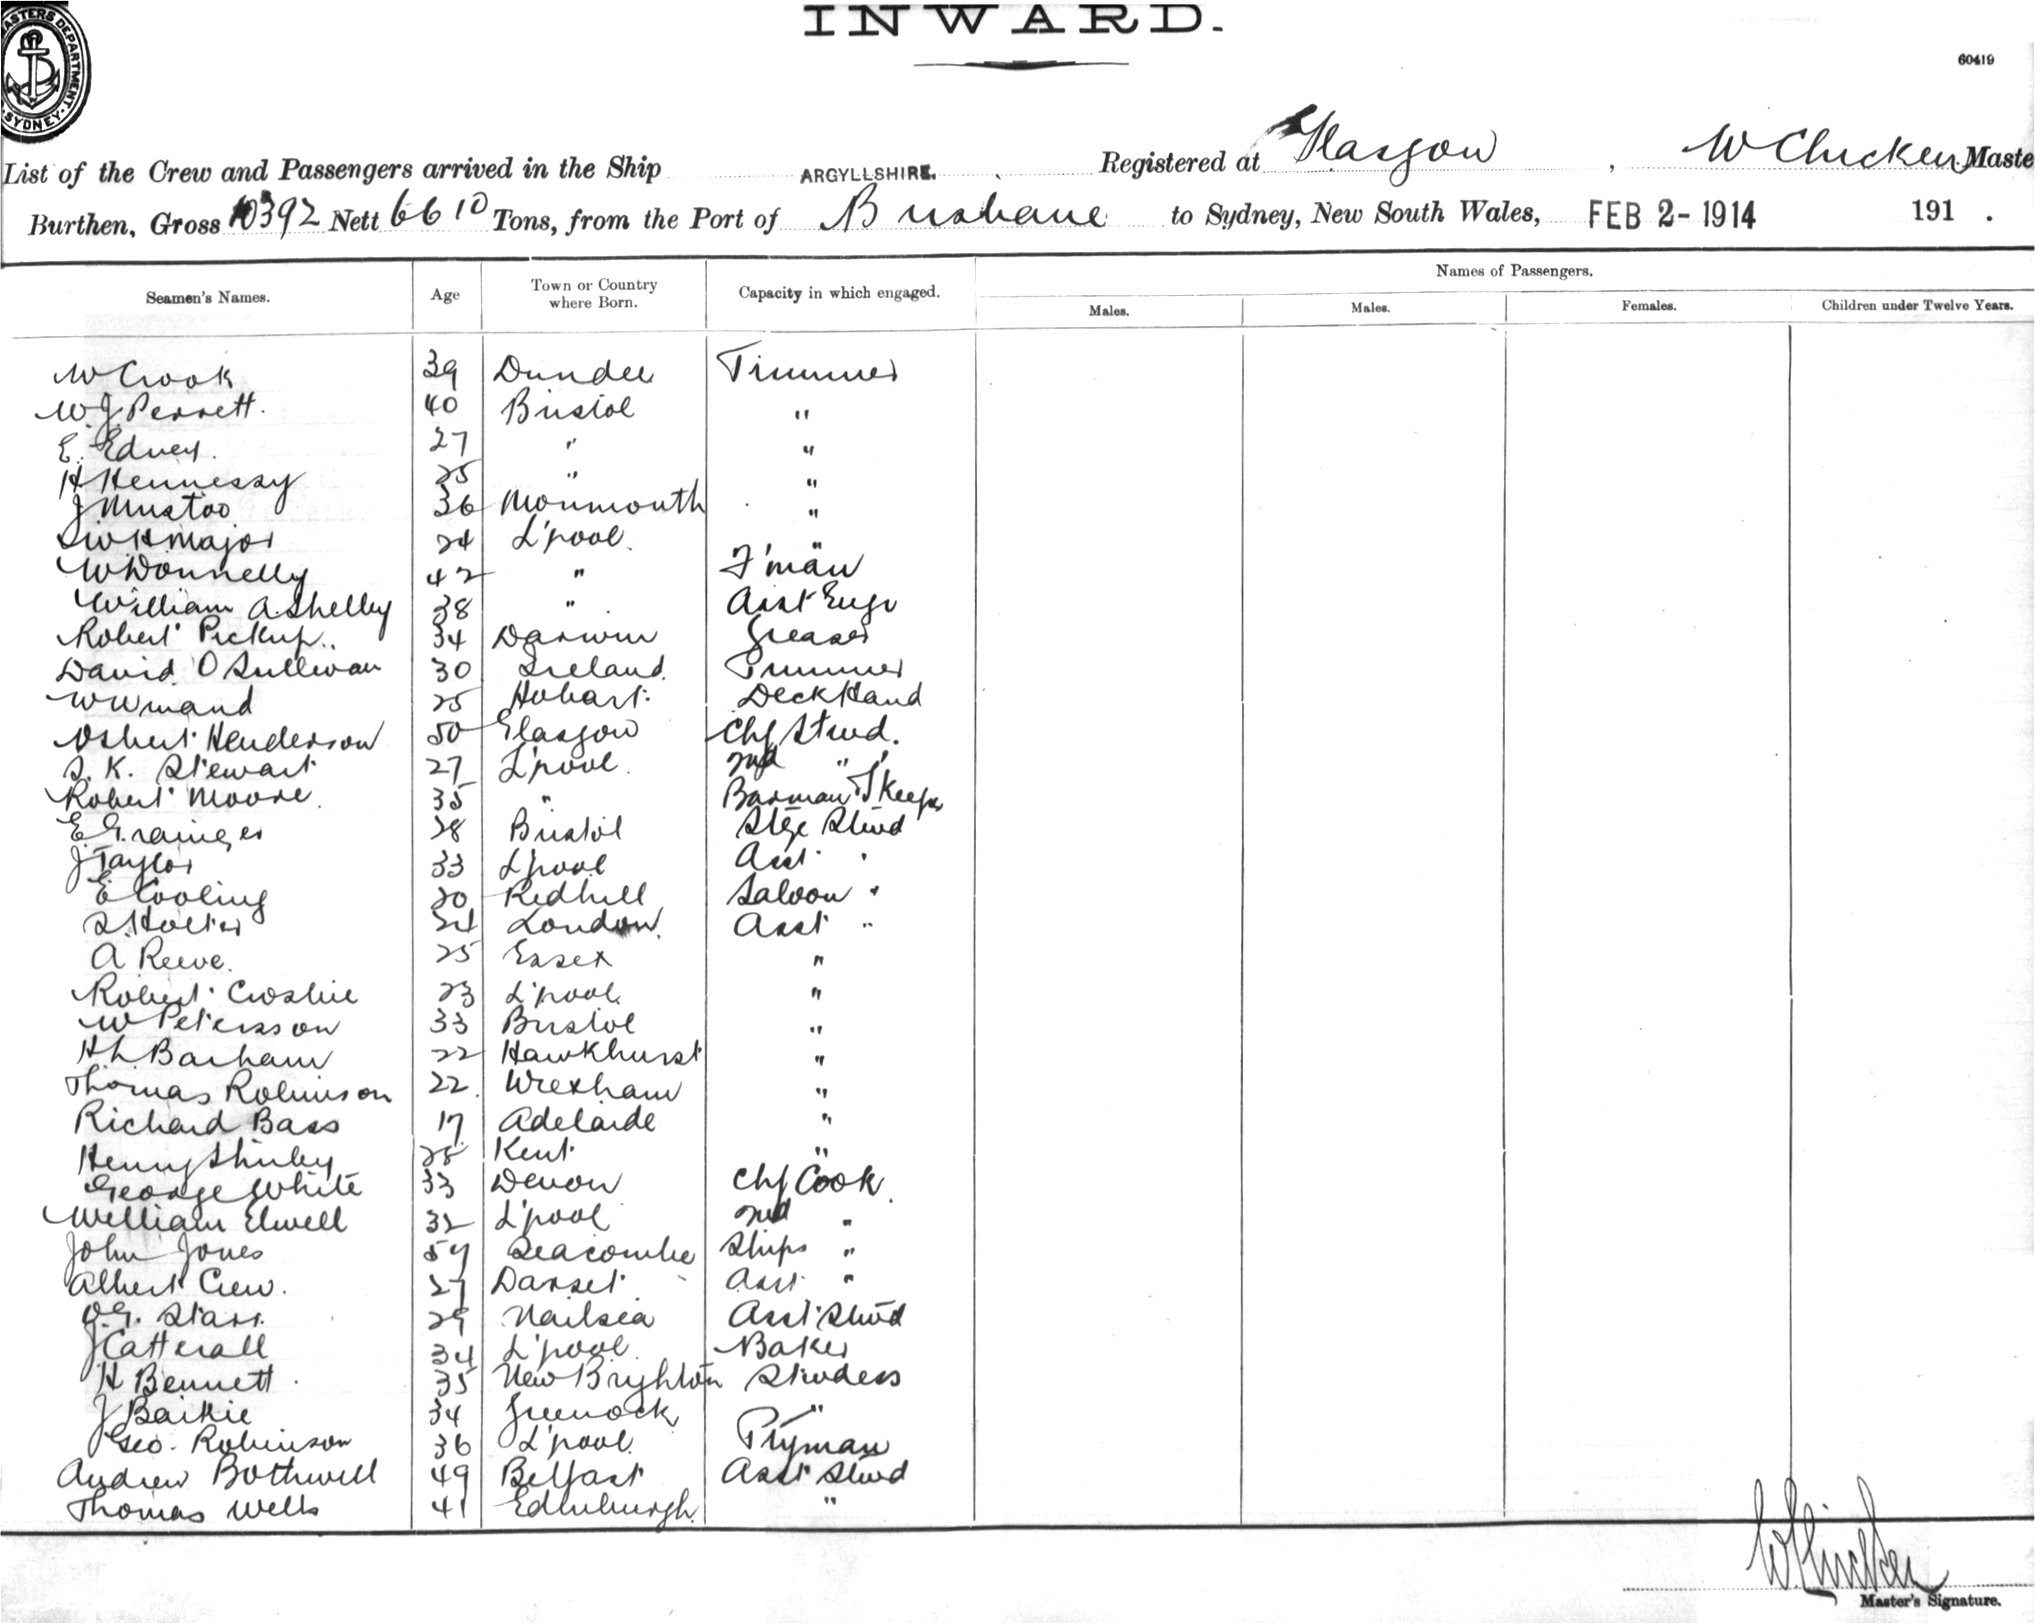 INWARD.
CUSTOMS DEPARTMENT. SYDNEY.
60419
List of the Crew and Passengers arrived in the Ship ARGYLLSHIRE. Registered at Glasgow, W Chicken Maste
Burthen, Gross 10392 Nett 6610 Tons, from the Port of Brisbane to Sydney, New South Wales, FEB 2-1914 191 .
Names of Passengers.
Seamen's Names. Age Town or Country where Born. Capacity in which engaged. Males. Males. Females. Children under Twelve Years.
W Crook 39 Dundee Trimmer
W.J. Perrett. 40 Bristol "
E. Edney. 27 " "
H Hennessy 25 " "
J Mustoo 36 Monmouth "
S W H Major 24 L'pool. "
W Donnelly 42 " F'man
William A Shelley 38 " Asst Engr
Robert Pickup.. 34 Darwin Greaser
David O Sullivan 30 Ireland. Trimmer
W Wmand 25 Hobart. Deck Hand
Osbert Henderson 50 Glasgow Chf Stwd.
S. K. Stewart 27 L'pool. 2nd "
Robert Moore. 35 " Barman S'Keeper
E Grainger 28 Bristol Stge Stwd
J Taylor 33 L'pool Asst "
E Cooling 20 Redhill Saloon "
S. Holter 24 London. Asst "
A Reeve. 25 Essex "
Robert Crosbie 23 L'pool. "
W Petersson 33 Bristol "
H L Barham 22 Hawkhurst "
Thomas Robinson 22. Wrexham "
Richard Bass 17 Adelaide "
Henry Shirley 28 Kent "
George White 33 Devon Chf Cook.
William Elwell 32 L'pool 2nd "
John Jones 54 Seacombe Ships "
Albert Crew. 27 Darset Asst "
O.G. Starr. 29 Nailsea Asst Stwd
J Catterall 34 L'pool. Baker
H Bennett. 35 New Brighton Stwdess
J Baikie 34 Greenock "
Geo. Robinson 36 L'pool. P'tryman
Andrew Bothwell 49 Belfast Asst Stwd
Thomas Wells 41 Edinburgh. "
W Chicken
Master's Signature.